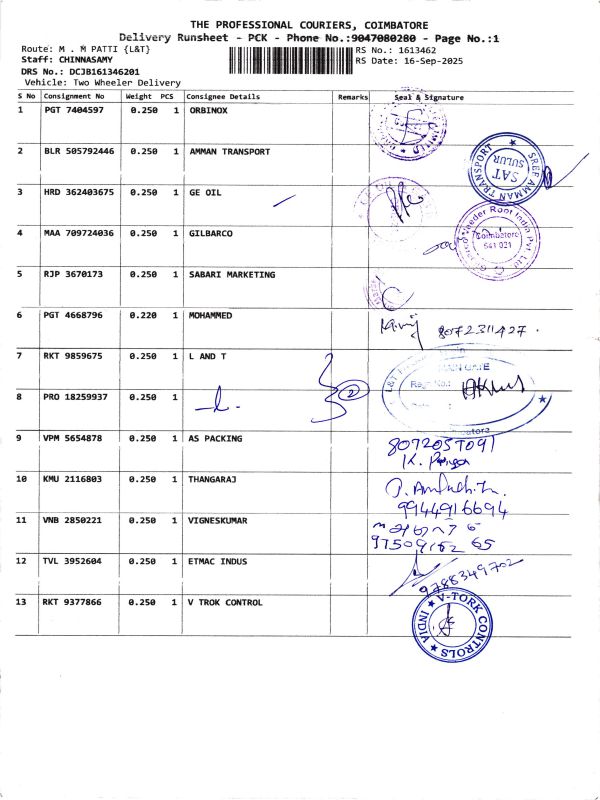 THE PROFESSIONAL COURIERS, COIMBATORE
Delivery Runsheet - PCK - Phone No.:9047080280 - Page No.:1
Route: M . M PATTI {L&T} RS No.: 1613462
Staff: CHINNASAMY RS Date: 16-Sep-2025
DRS No.: DCJB161346201
Vehicle: Two Wheeler Delivery
S No Consignment No Weight PCS Consignee Details Remarks Seal & Signature
1 PGT 7404597 0.250 1 ORBINOX
2 BLR 505792446 0.250 1 AMMAN TRANSPORT
SREE AMMAN TRANSPORT SAT SULUR
3 HRD 362403675 0.250 1 GE OIL
4 MAA 709724036 0.250 1 GILBARCO
Veeder Root India Pvt Ltd Coimbatore 641 021
5 RJP 3670173 0.250 1 SABARI MARKETING
6 PGT 4668796 0.220 1 MOHAMMED
8072311427.
7 RKT 9859675 0.250 1 L AND T
MAIN GATE
Regn No.:
8 PRO 18259937 0.250 1 -d- 2
9 VPM 5654878 0.250 1 AS PACKING
10 KMU 2116803 0.250 1 THANGARAJ
9944916694
11 VNB 2850221 0.250 1 VIGNESKUMAR
12 TVL 3952604 0.250 1 ETMAC INDUS
9788349702
13 RKT 9377866 0.250 1 V TROK CONTROL
V-TORK CONTROLS INDIA